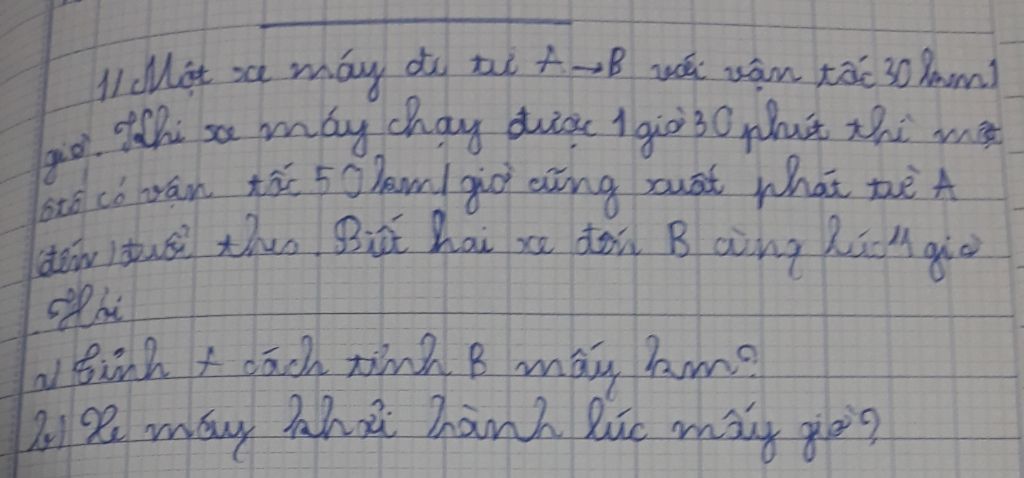 1) Một xe máy đi từ A → B với vận tốc 30 km/
giờ. Khi xe máy chạy được 1 giờ 30 phút thì một
ôtô có vận tốc 50 km/giờ cũng xuất phát từ A
đuổi theo. Biết hai xe đến B cùng lúc 11 giờ
Hỏi
a) tỉnh A cách tỉnh B mấy km?
b) Xe máy khởi hành lúc mấy giờ?